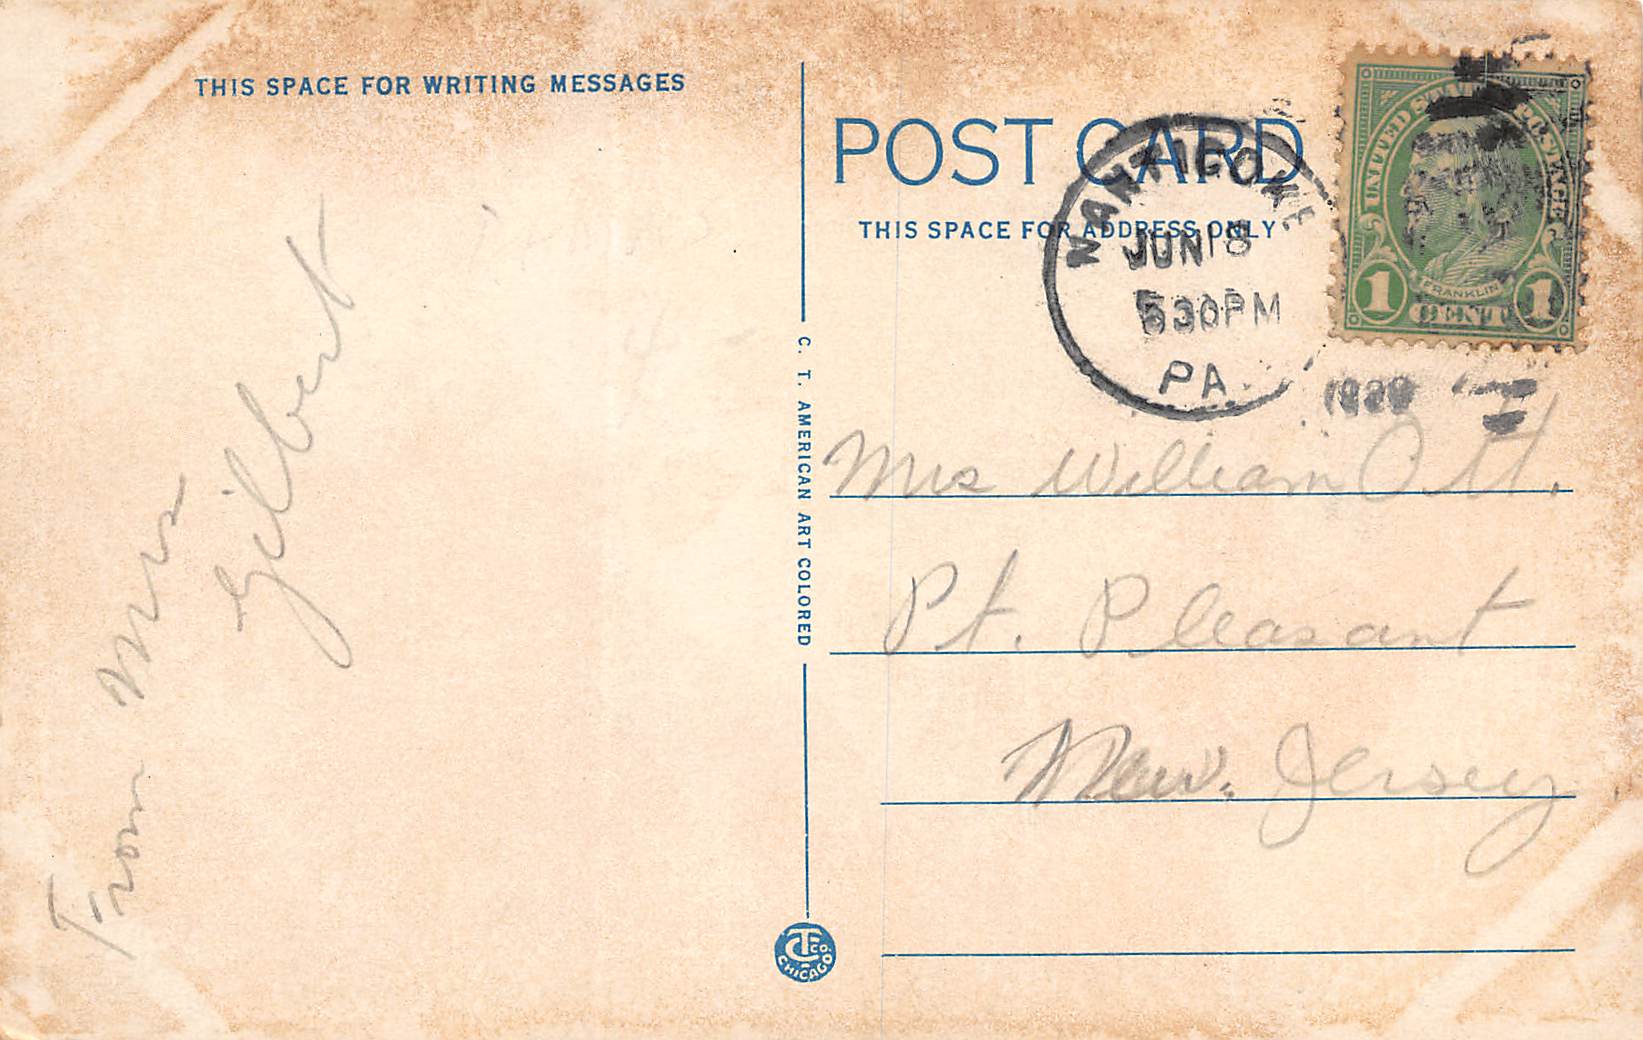 THIS SPACE FOR WRITING MESSAGES
From Mrs
Gilbert
C. T. AMERICAN ART COLORED
C.T. CO.
CHICAGO
POST CARD
THIS SPACE FOR ADDRESS ONLY
NANTICOKE
JUN 18
530PM
PA.
UNITED STATES POSTAGE
FRANKLIN
1 CENT 1
Mrs William Ott.
Pt. Pleasant
New. Jersey